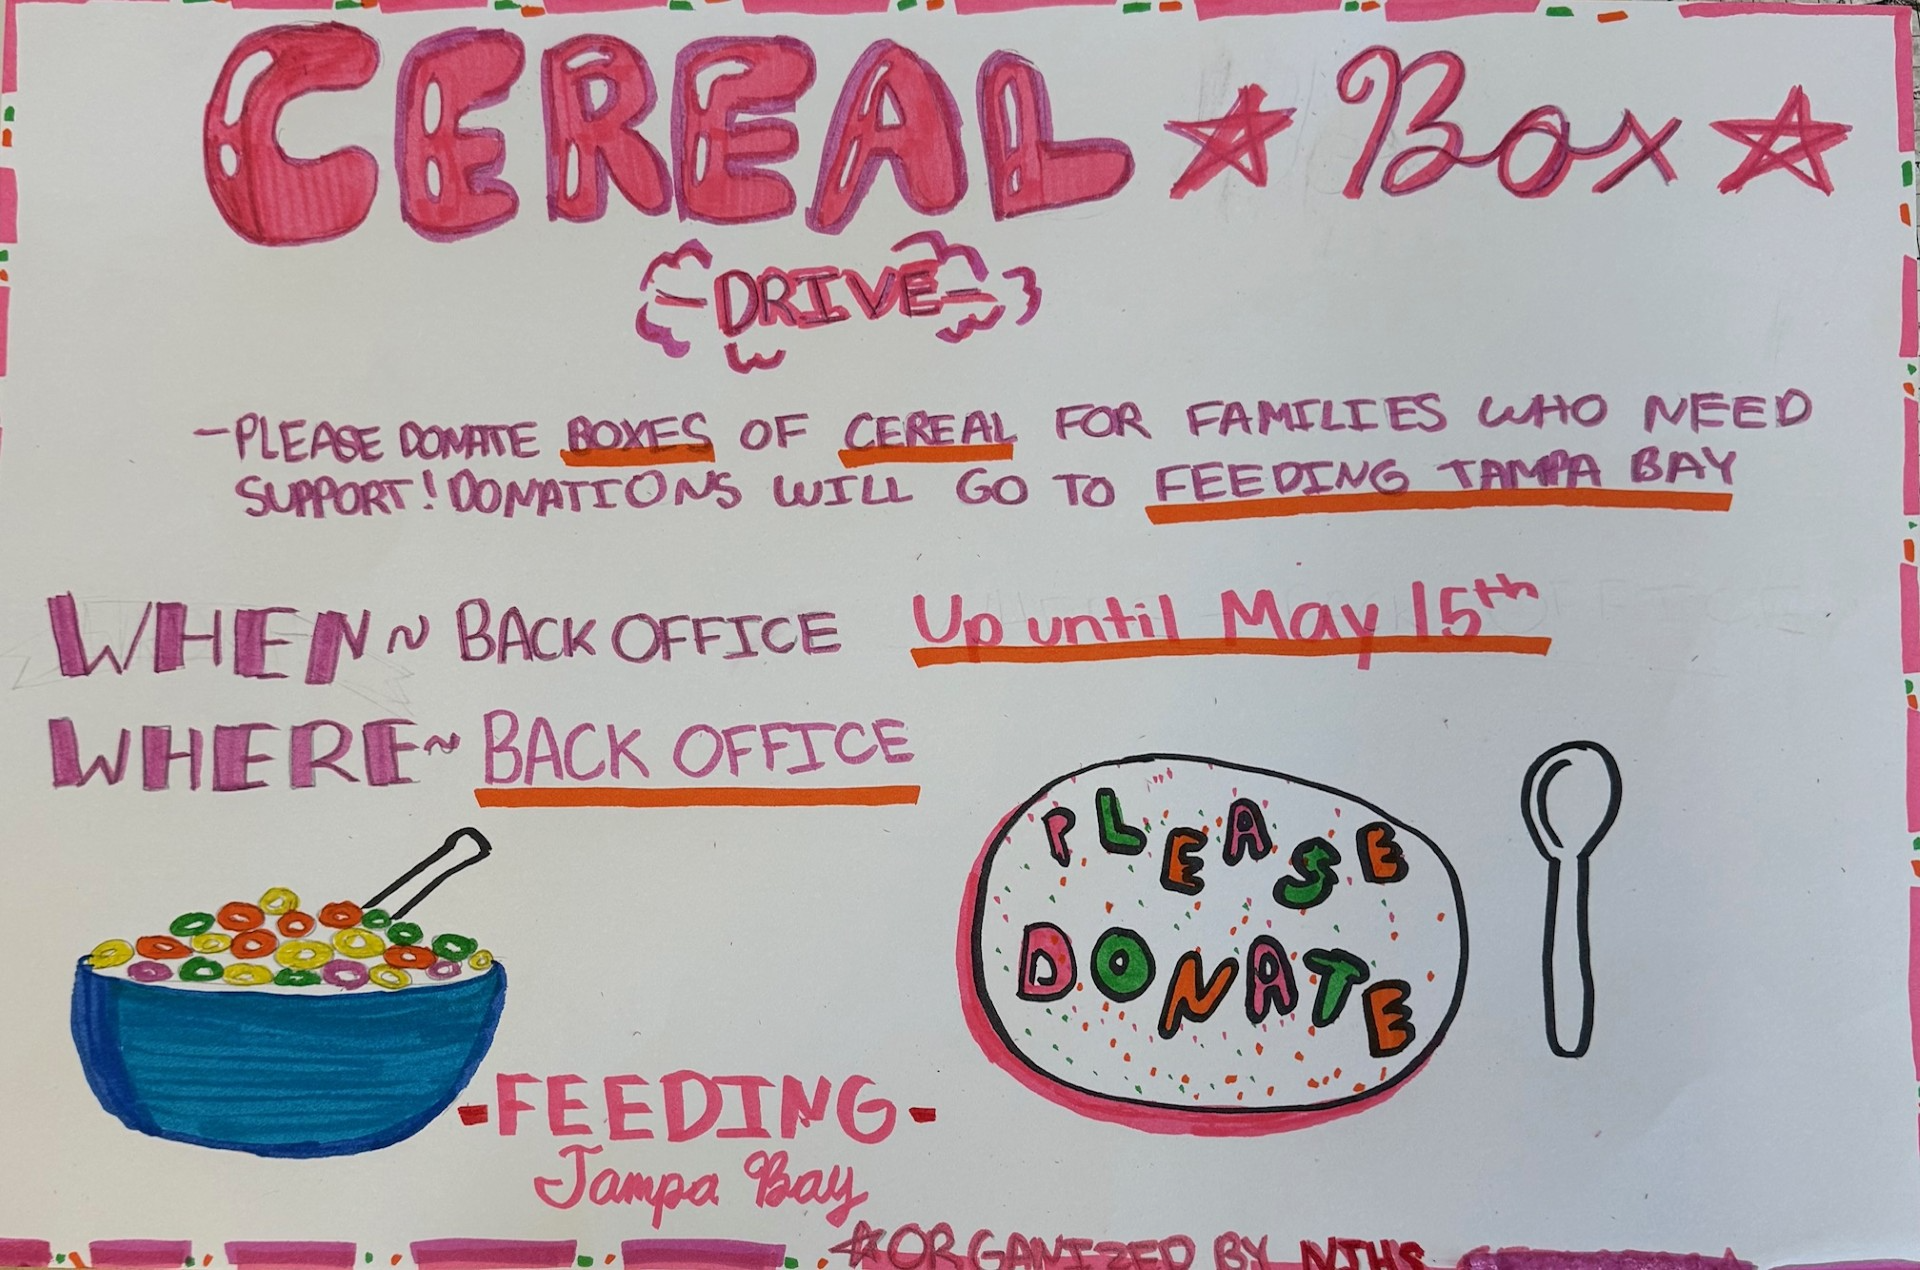 CEREAL ☆ Box ☆
-DRIVE-
-PLEASE DONATE BOXES OF CEREAL FOR FAMILIES WHO NEED
SUPPORT! DONATIONS WILL GO TO FEEDING TAMPA BAY
WHEN~ BACK OFFICE Up until May 15th
WHERE~ BACK OFFICE
PLEASE
DONATE
-FEEDING-
Tampa Bay
☆ORGANIZED BY NJHS